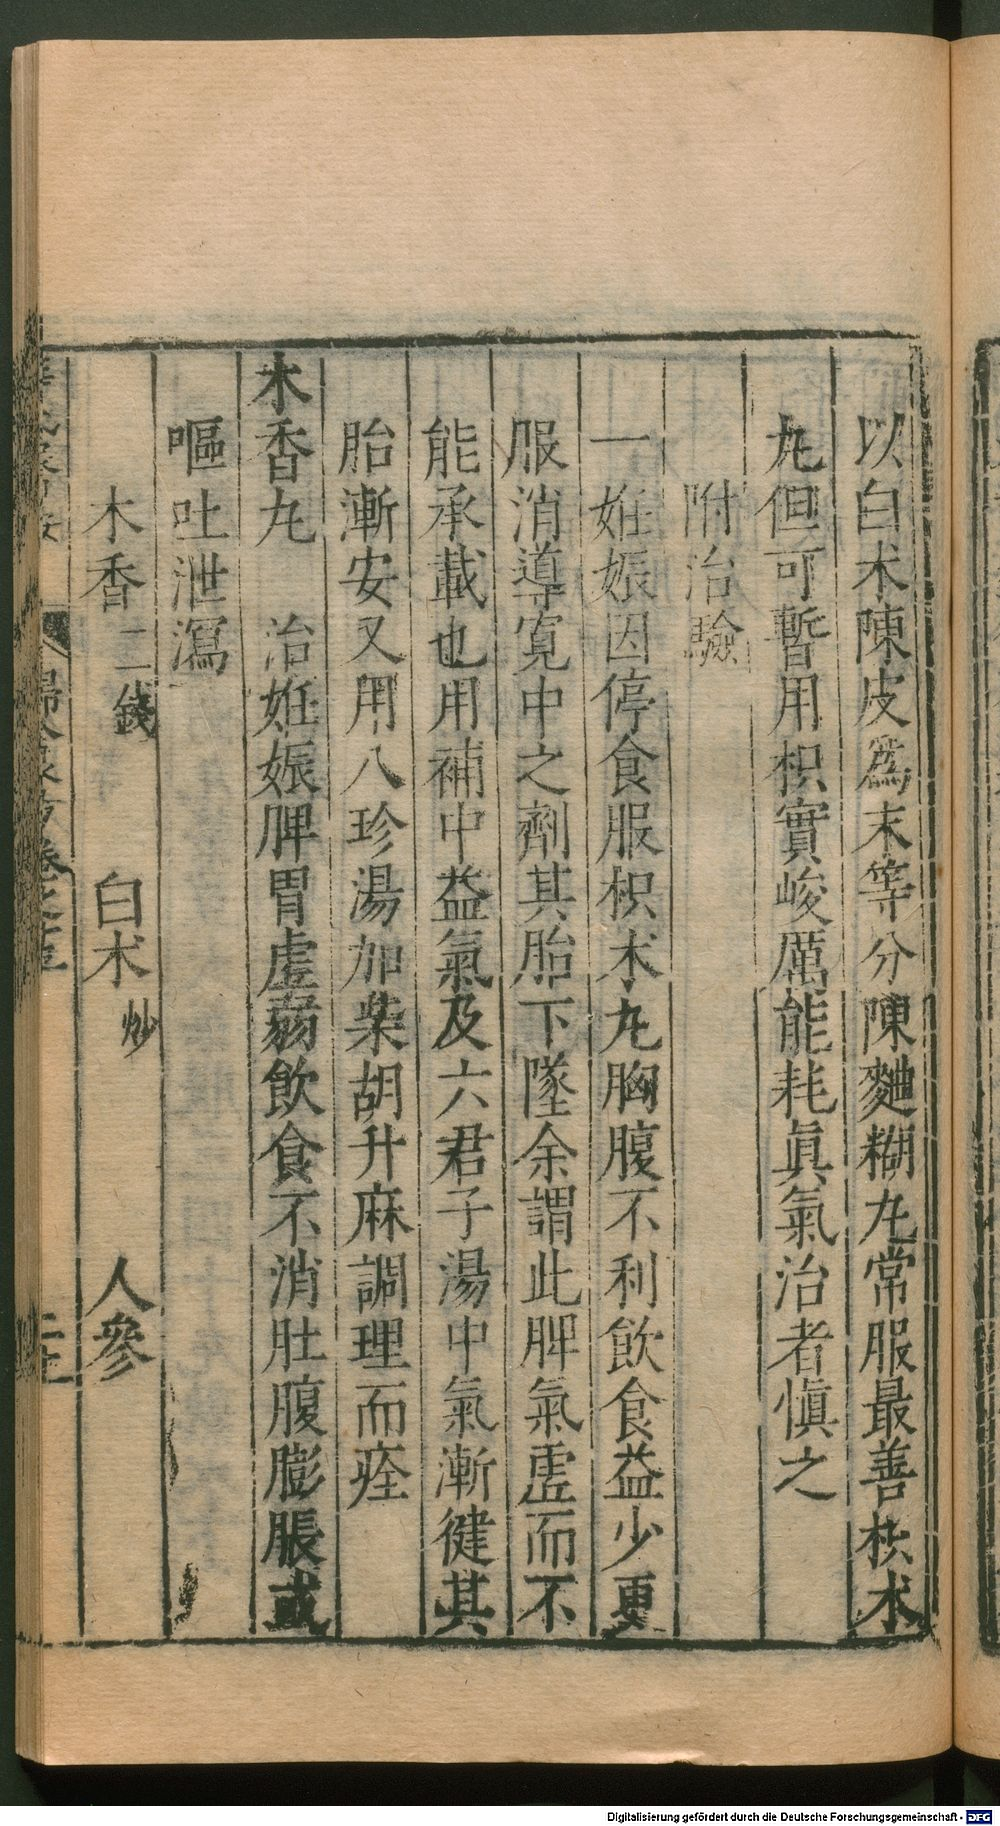 以白术陳皮爲末等分陳麯糊丸常服最善枳术
丸但可暫用枳實峻厲能耗眞氣治者慎之
附治驗
一妊娠因停食服枳术丸胸腹不利飲食益少更
服消導寬中之劑其胎下墜余謂此脾氣虛而不
能承載也用補中益氣及六君子湯中氣漸健其
胎漸安又用八珍湯加柴胡升麻調理而痊
木香丸 治妊娠脾胃虛弱飲食不消肚腹膨脹或
嘔吐泄瀉
木香二錢 白术炒 人參
婦人良方卷之
Digitalisierung gefördert durch die Deutsche Forschungsgemeinschaft - DFG